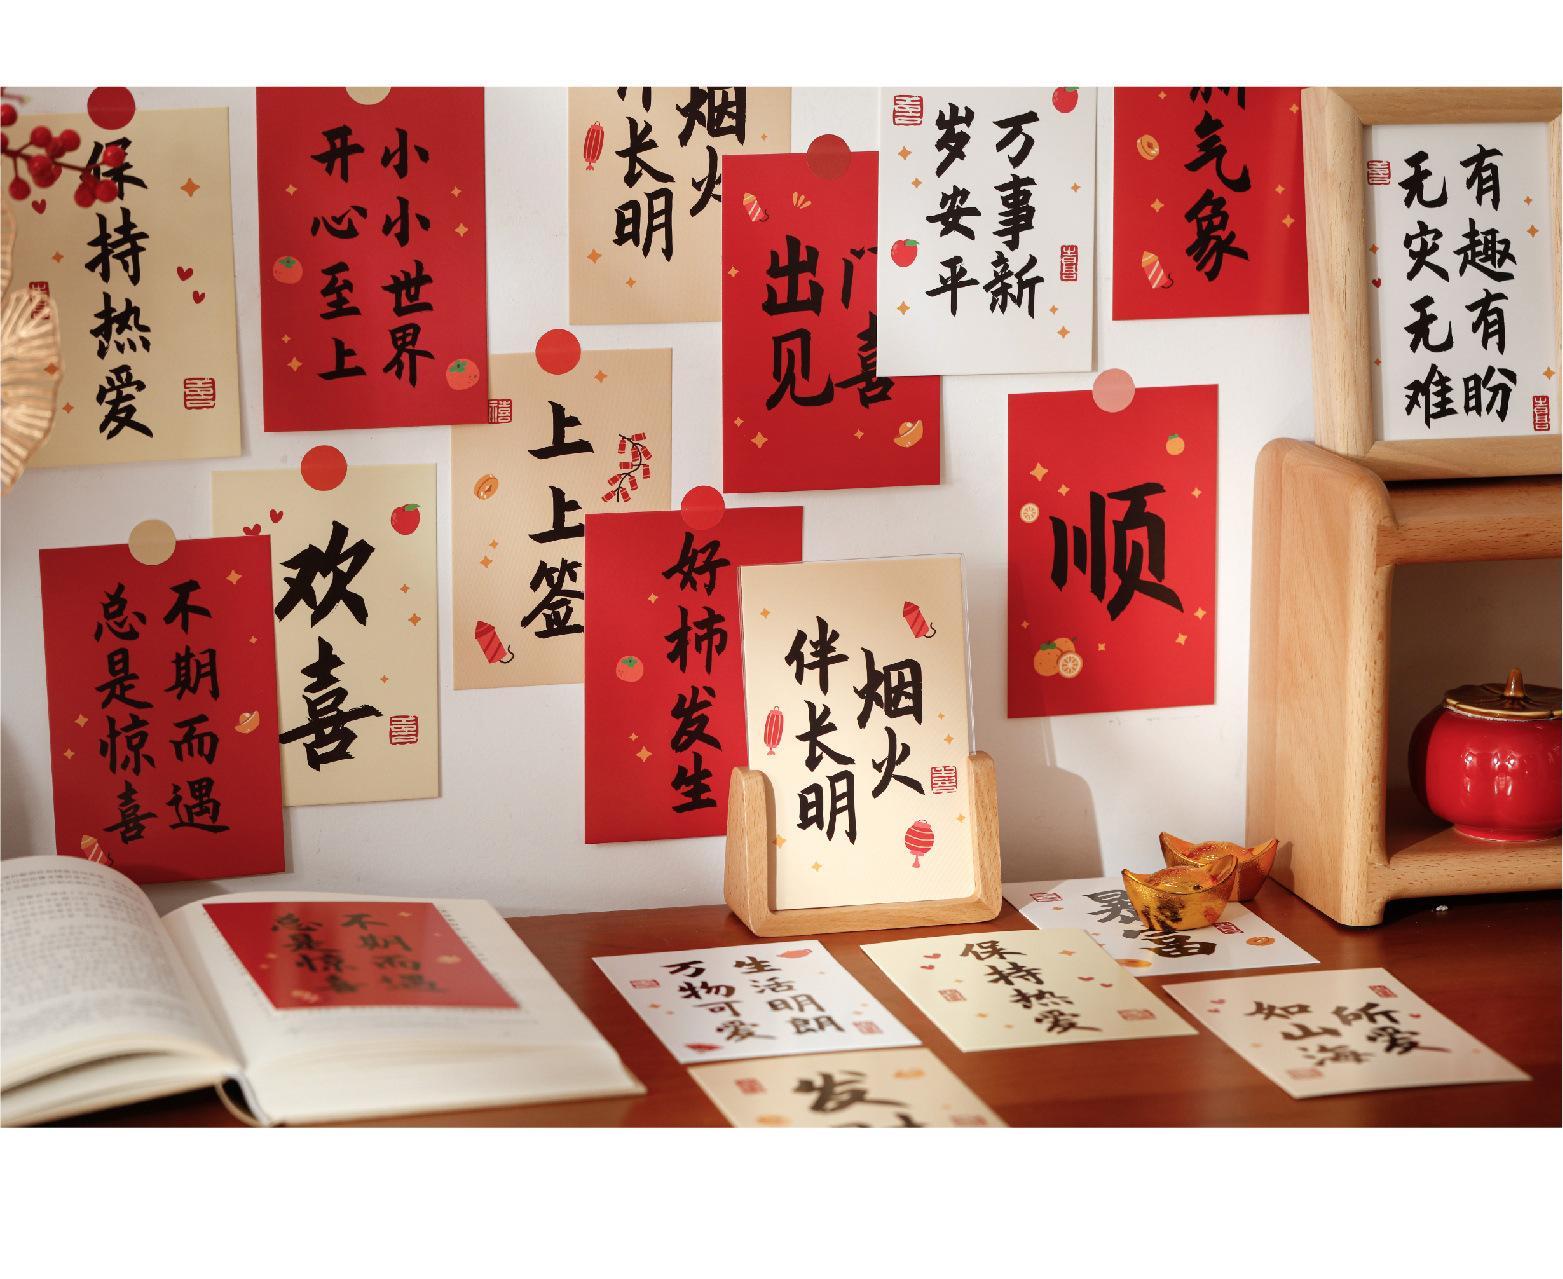 保持热爱
小小世界
开心至上
烟火
长明
出门
见喜
万事新
岁安平
气象
有趣有盼
无灾无难
上上签
欢喜
不期而遇
总是惊喜
好柿发生
烟火
伴长明
顺
不期而遇
总是惊喜
生活明朗
万物可爱
保持热爱
暴富
所爱
如山海
发